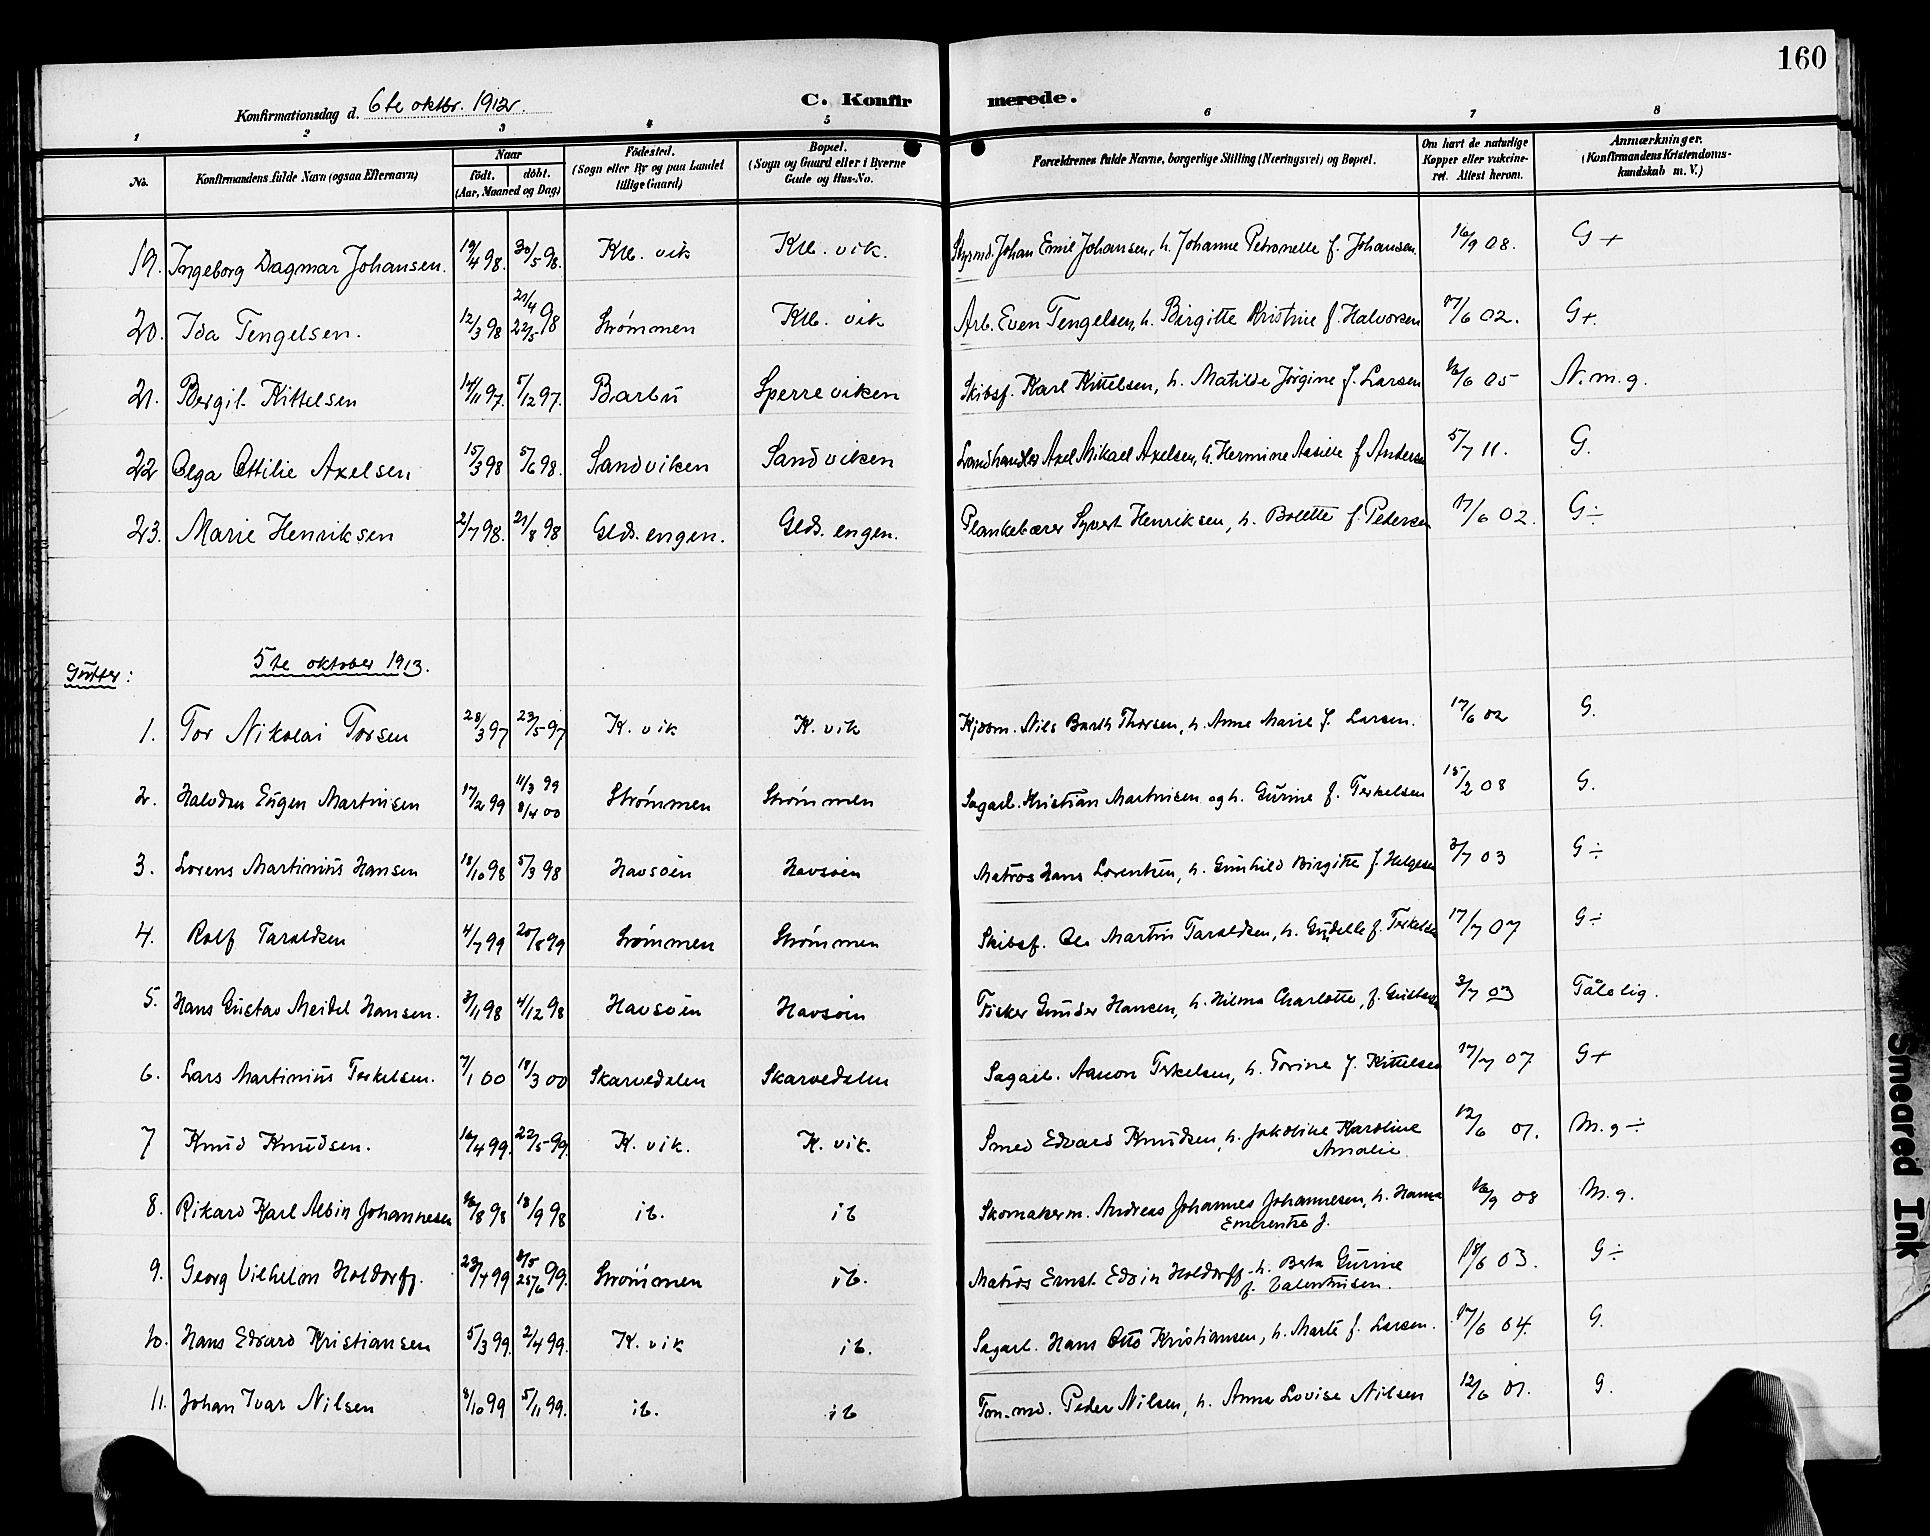 160
Konfirmationsdag d. 6te oktbr. 1912.
C. Konfirmerede.
1 2 3 4 5 6 7 8
No. Konfirmandens fulde Navn (ogsaa Efternavn) Naar født. døbt. (Aar, Maaned og Dag) Fødested. (Sogn eller By og paa Landet tillige Gaard) Bopæl. (Sogn og Gaard eller i Byerne Gade og Hus-No. Forældrenes fulde Navne, borgerlige Stilling (Næringsvei) og Bopæl. Om havt de naturlige Kopper eller vaccineret. Attest herom. Anmærkninger. (Konfirmandens Kristendomskundskab m. V.)
19. Ingeborg Dagmar Johansen. 19/4 98. 30/5 98. Klb. vik Klb. vik. Styrmd. Johan Emil Johansen, h. Johanne Petronelle f. Johansen. 16/9 08. G +
20. Ida Tengelsen. 12/3 98 21/4 22/5 98 Strømmen Klb. vik Arb. Even Tengelsen, h. Birgitte Kristine f. Halvorsen 17/6 02. G+.
21. Bergit Kittelsen 14/11 97. 5/12 97. Barbu Sperreviken Skibsf. Karl Kittelsen, h. Matilde Jørgine f. Larsen 16/6 05 N.m.g.
22 Olga Ottilie Axelsen 15/3 98 5/6 98. Sandviken Sandviken Landhandler Axel Mikael Axelsen, h. Hermine f. Andersen 5/7 11. G.
23. Marie Henriksen 2/7 98. 21/8 98 Glds. engen. Glds. engen. Plankebærer Syvert Henriksen, h. Bolette f. Pedersen 17/6 02. G÷
Gutter: 5te oktober 1913.
1. Tor Nikolai Torsen 28/3 97 23/5 97 K. vik K. vik Nils Barth Thorsen, h. Anne Marie f. Larsen. 17/6 02 G.
2. Halvdan Eugen Martinsen 17/2 99 11/3 99 8/4 00 Strømmen Strømmen Sagarb. Kristian Martinsen og h. Gurine f. Terkelsen 15/2 08 G.
3. Lorens Martinius Hansen 18/10 98 5/3 98 Havsøen Havsøen Matros Hans Lorentzen, h. Gunhild Birgitte f. Helgesen 3/7 03 G÷
4. Rolf Taraldsen 4/7 99 20/8 99 Strømmen Strømmen Skibsf. Ole Martin Taraldsen, h. f. Terkelsen 17/7 07 G÷
5. Hans Gustav Meidel Hansen. 3/11 98 4/12 98 Havsøen Havsøen Fisker Gunder Hansen, h. Hilma Charlotte, f. 3/7 03 Tålelig.
6. Lars Martinius Terkelsen. 7/1 00 18/3 00 Skarvedalen Skarvedalen Sagarb. Aanon Terkelsen, h. Torine f. Kittelsen 17/7 07 G+
7 Knud Knudsen. 16/4 99. 22/5 99. K. vik. K. vik. Smed Edvard Knudsen, h. Jakobine Karoline
Amalie. 12/6 01. M.g÷
8. Rikard Karl Albin Johannesen 16/8 98 18/9 98 ib. ib Skomakerm. Andreas Johannes Johannesen, h. Hanna
Emerentse f. 16/9 08 M.g.
9. Georg Vilhelm Holdorff. 23/4 99 8/5 25/6 99. Strømmen ib. Matros Ernst Edvin Holdorff h. Berta Gurine
f. Valentinsen. 18/6 03. G÷
10. Hans Edvard Kristiansen 5/3 99. 2/4 99. K. vik ib. Sagarb. Hans Otto Kristiansen, h. Marte f. Larsen. 17/6 04. G.
11. Johan Ivar Nilsen 8/10 99 5/11 99. ib. ib Peder Nilsen, h. Anna Lovise Nilsen 12/6 01. G.
Smeared Ink